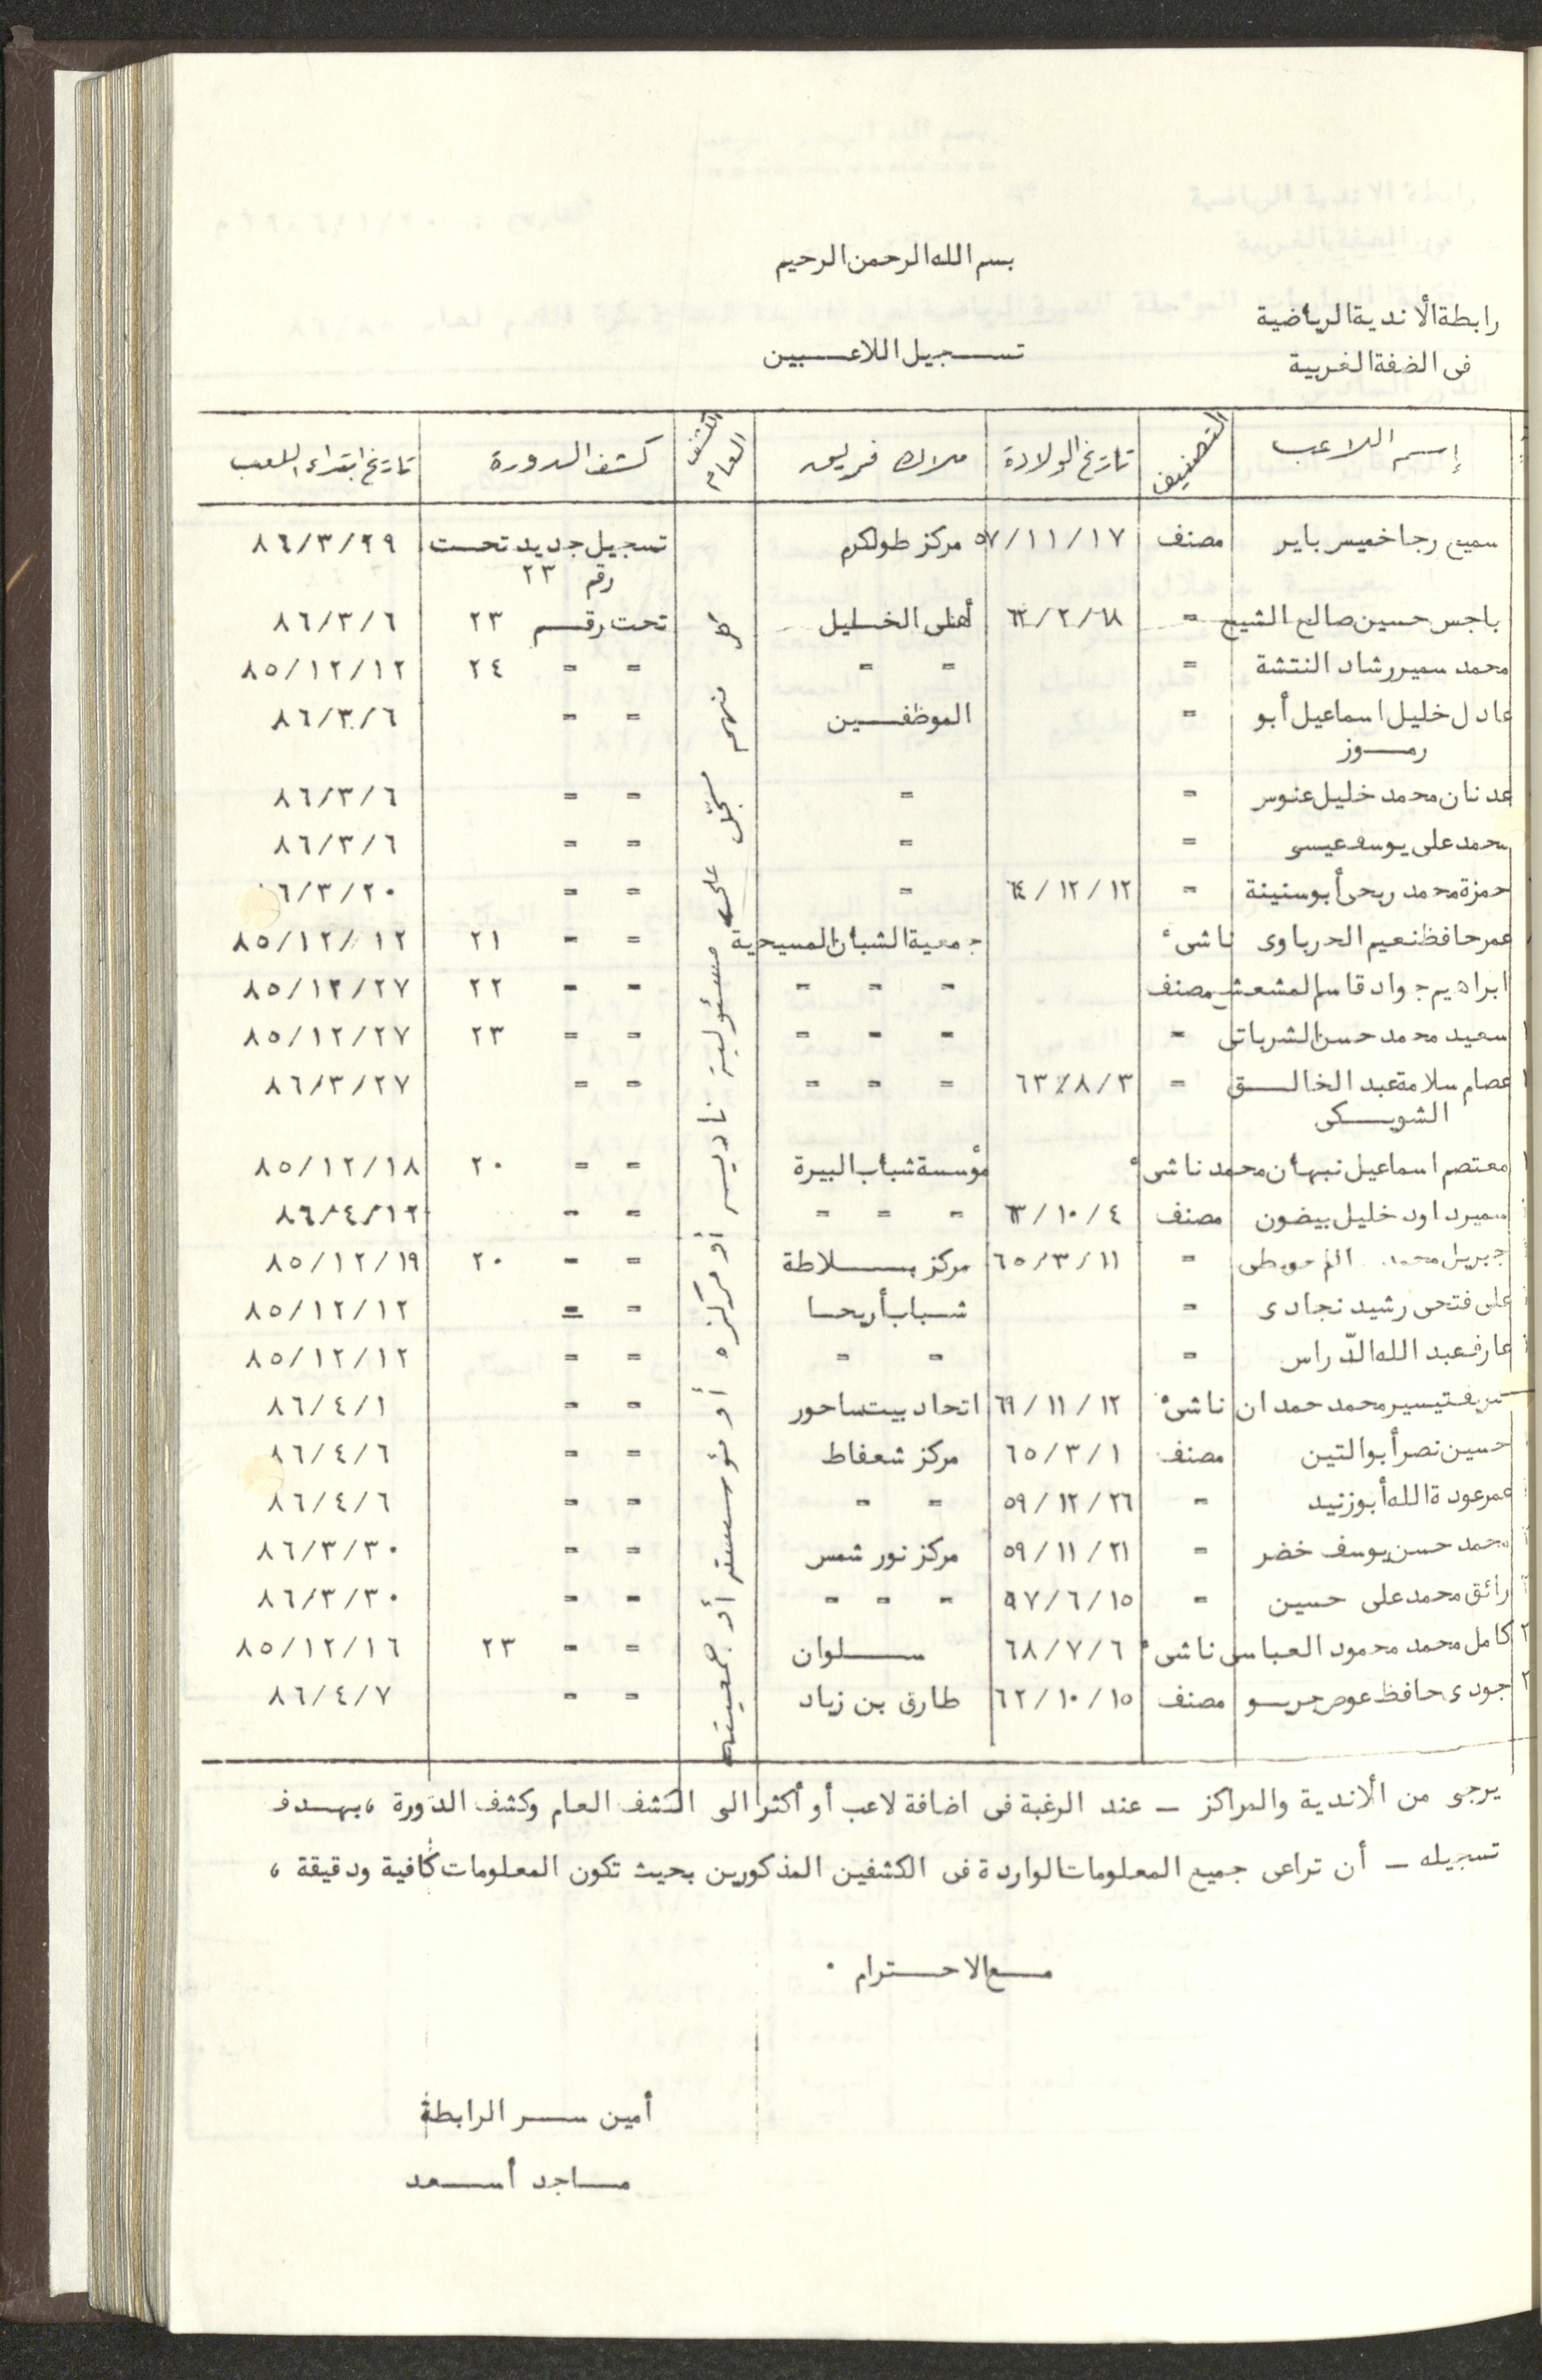 بسم الله الرحمن الرحيم
رابطة الأندية الرياضية
فى الضفة الغربية
تسجيل اللاعبين
إسم اللاعب التصنيف تاريخ الولادة ملاك فريق الكشف العام كشف الدورة تاريخ ابتداء اللعب
سميع رجا خميس باير مصنف ٥٧/١١/١٧ مركز طولكرم تسجيل جديد تحت ٨٦/٣/٢٩
رقم ٢٣
باجس حسين صالح الشيخ = أهلى الخليل تحت رقم ٢٣ ٨٦/٣/٦
محمد سمير رشاد النتشة = = = = = ٢٤ ٨٥/١٢/١٢
عادل خليل اسماعيل أبو = الموظفين = = ٨٦/٣/٦
رموز
عدنان محمد خليل عنوس = = = = ٨٦/٣/٦
محمد على يوسف عيسى = = = = ٨٦/٣/٦
حمزة محمد ربحى أبو سنينة = ٦٤/١٢/١٢ = = = ٦/٣/٢٠
عمر حافظ نعيم الحرباوى ناشىء جمعية الشبان المسيحية = = ٢١ ٨٥/١٢/١٢
ابراهيم جواد قاسم المشعشع مصنف = = = = = ٢٢ ٨٥/١٢/٢٧
سعيد محمد حسن الشرباتى = = = = = = ٢٣ ٨٥/١٢/٢٧
عصام سلامة عبد الخالق = ٦٣/٨/٣ = = = = = ٨٦/٣/٢٧
الشويكى
معتصم اسماعيل نبهان محمد ناشىء مؤسسة شباب البيرة = = ٢٠ ٨٥/١٢/١٨
سمير داود خليل بيضون مصنف ٦٣/١٠/٤ = = = = = ٨٦/٤/١٢
جبريل محمد = ٦٥/٣/١١ مركز بلاطة = = ٢٠ ٨٥/١٢/١٩
على فتحى رشيد نجادى = شباب أريحا = = ٨٥/١٢/١٢
عارف عبد الله الدّراس = = = = = ٨٥/١٢/١٢
شريف تيسير محمد حمدان ناشىء ٦٩/١١/١٢ اتحاد بيت ساحور = = ٨٦/٤/١
حسين نصر أبو التين مصنف ٦٥/٣/١ مركز شعفاط = = ٨٦/٤/٦
عمر عودة الله أبو زنيد = ٥٩/١٢/٢٦ = = = = ٨٦/٤/٦
محمد حسن يوسف خضر = ٥٩/١١/٢١ مركز نور شمس = = ٨٦/٣/٣٠
رائق محمد على حسين = ٦/١٥ = = = = = ٨٦/٣/٣٠
كامل محمد محمود العباسى ناشىء ٦٨/٧/٦ سلوان = = ٢٣ ٨٥/١٢/١٦
جودى حافظ عوض جريسو مصنف ٦٢/١٠/١٥ طارق بن زياد = = ٨٦/٤/٧
كل منهم مسجّل على مسئولية ناديه أو مركزه أو مؤسسته أو جمعيته
يرجى من الأندية والمراكز ـ عند الرغبة فى اضافة لاعب أو أكثر الى الكشف العام وكشف الدورة ، بهدف
تسجيله ـ أن تراعى جميع المعلومات الواردة فى الكشفين المذكورين بحيث تكون المعلومات كافية ودقيقة ،
مع الاحترام .
أمين سر الرابطة
ماجد أسعد